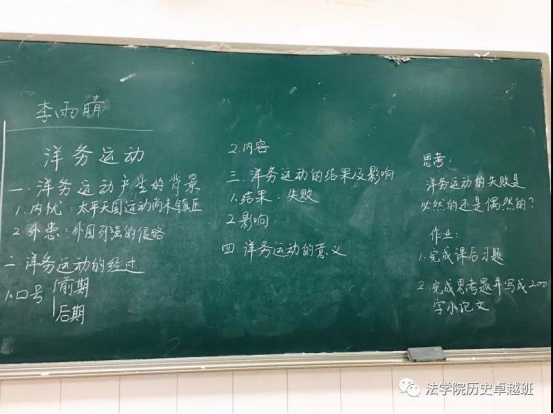 李雨晴
洋务运动
一、洋务运动产生的背景
1.内忧：太平天国运动尚未镇压
2.外患：外国列强的侵略
二、洋务运动的经过
1.口号
前期
后期
2.内容
三、洋务运动的结果及影响
1.结果：失败
2.影响
四 洋务运动的意义
思考：
洋务运动的失败是
必然的还是偶然的？
作业：
1.完成课后习题
2.完成思考题并写成200
字小论文
法学院历史卓越班